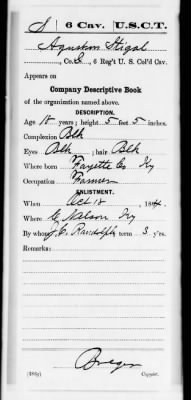 S | 6 Cav. | U.S.C.T.
Agustus Stigal
, Co. E, 6 Reg't U. S. Col'd Cav.
Appears on
Company Descriptive Book
of the organization named above.
DESCRIPTION.
Age 18 years; height 5 feet 5 inches.
Complexion Blk
Eyes Blk ; hair Blk
Where born Fayette Co Ky
Occupation Farmer
ENLISTMENT.
When Oct 18 , 1864.
Where C. Nelson Ky
By whom J. C. Randolph term 3 y'rs.
Remarks:
(383g) Copyist.